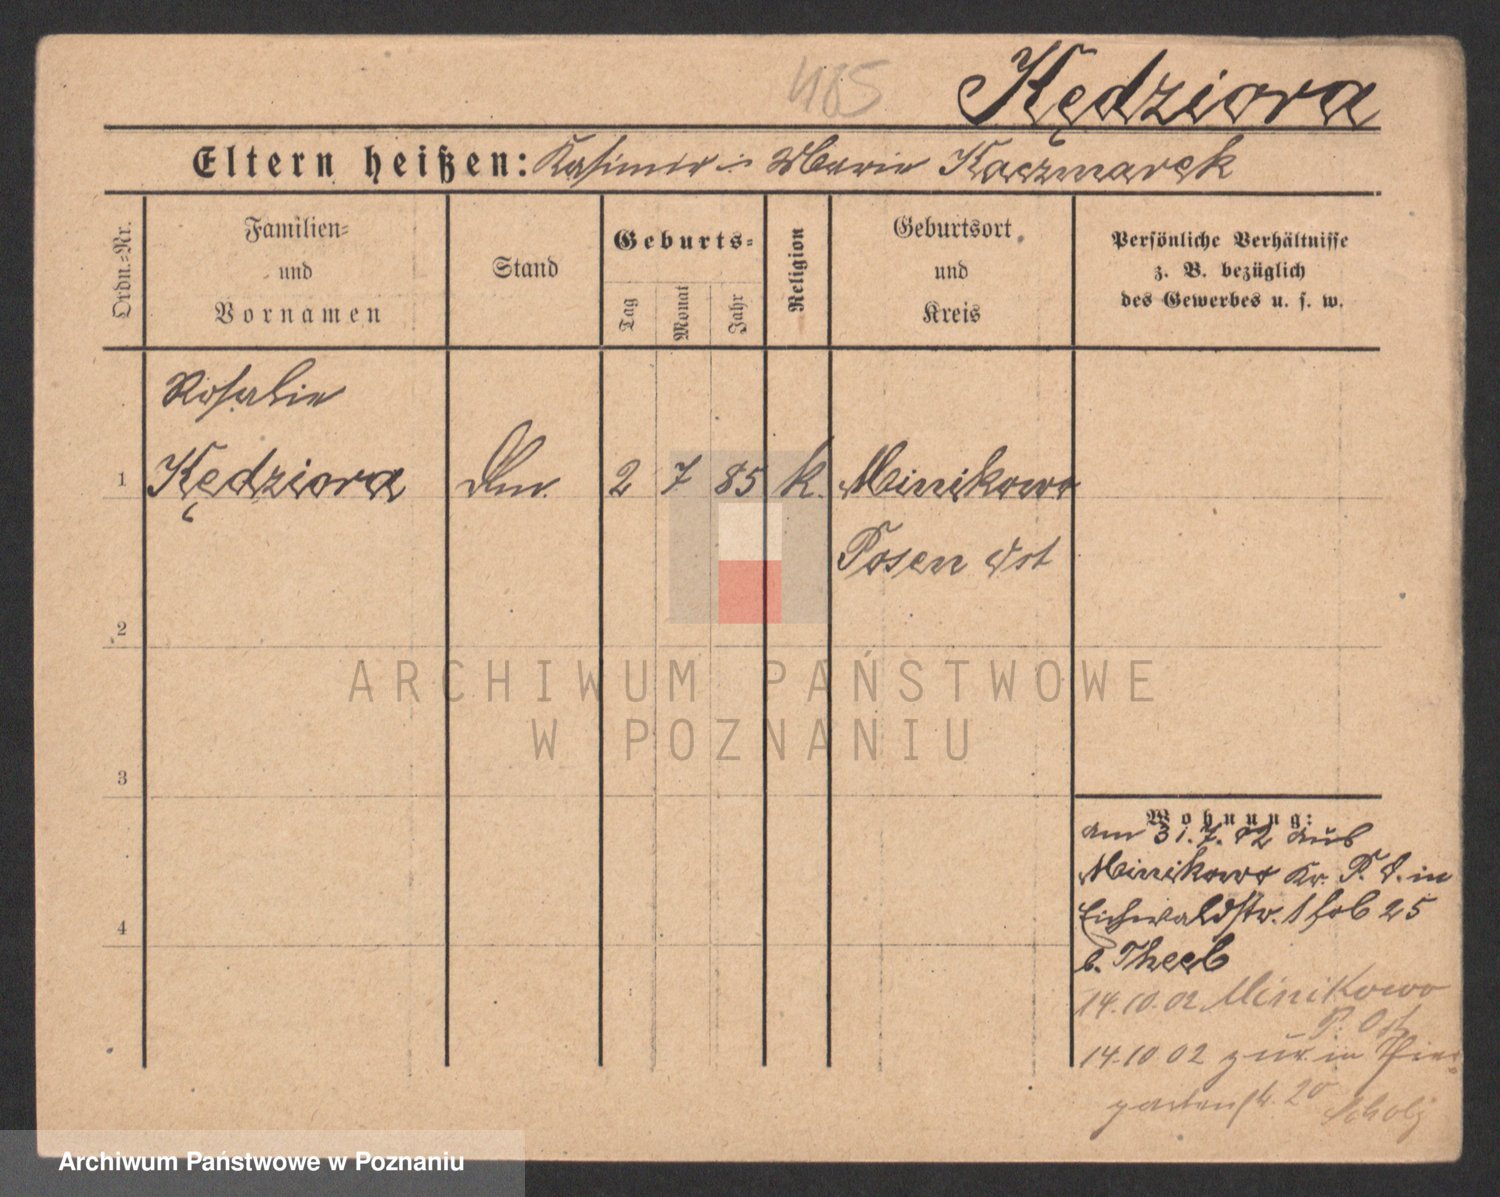 485
Kędziora
Eltern heißen: Kasimir u Marie Kaczmarek
Ordn.=Nr.
Familien=
und
Vornamen
Stand
Geburts=
Tag
Monat
Jahr
Religion
Geburtsort
und
Kreis
Persönliche Verhältnisse
z. B. bezüglich
des Gewerbes u. s. w.
Rosalie
1 Kędziora 2 7 85 k. Minikowo
Posen Ost
2
3
4
Wohnung:
am 31.7.02 aus
Minikowo Kr. P. O. in
Eichwaldstr. 25
b. Theeb
14.10.02 Minikowo
P. Ost
14.10 02 zur. in Thier=
gartenstr. 20 Scholz
ARCHIWUM PAŃSTWOWE
W POZNANIU
Archiwum Państwowe w Poznaniu